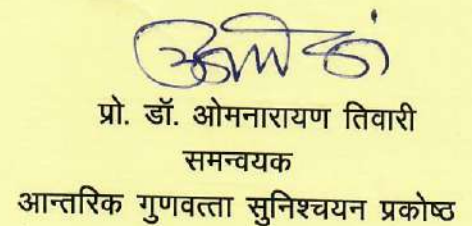 प्रो. डॉ. ओमनारायण तिवारी
समन्वयक
आन्तरिक गुणवत्ता सुनिश्चयन प्रकोष्ठ